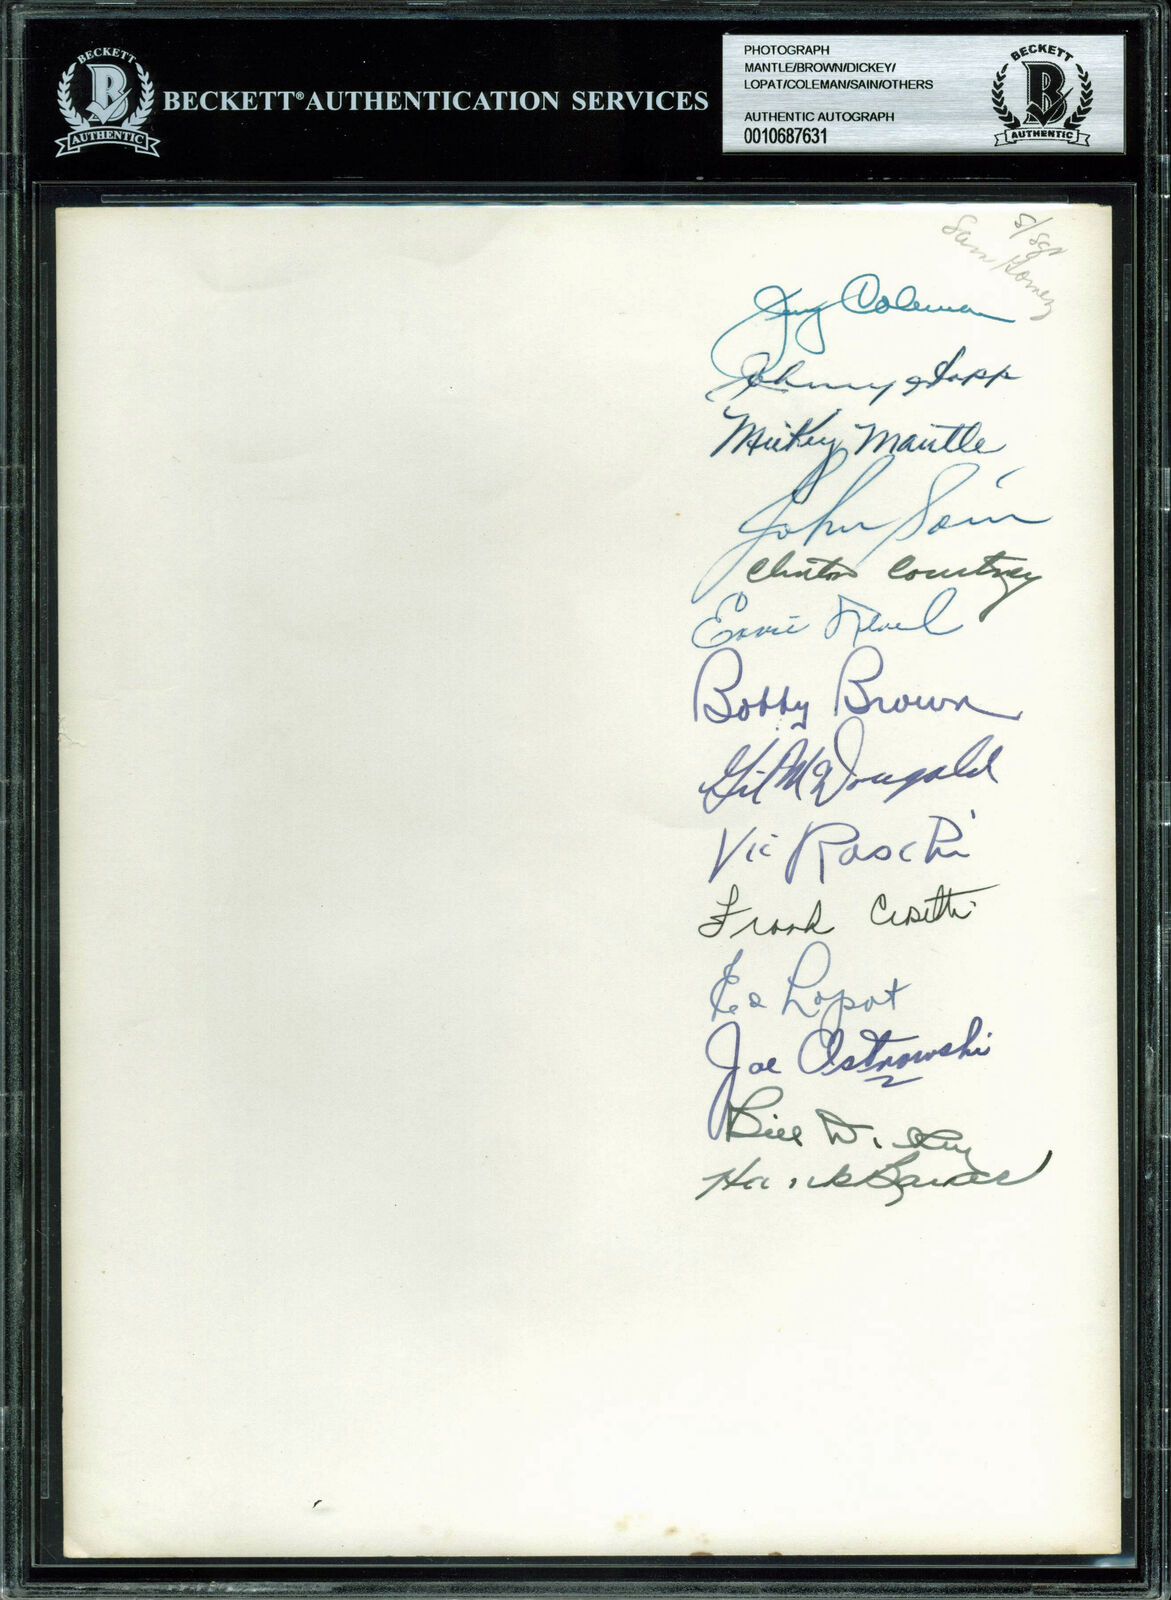 BECKETT
B
AUTHENTIC
BECKETT® AUTHENTICATION SERVICES
PHOTOGRAPH
MANTLE/BROWN/DICKEY/
LOPAT/COLEMAN/SAIN/OTHERS
AUTHENTIC AUTOGRAPH
0010687631
BECKETT
B
AUTHENTIC
S/Sgt
Sam Gomez
Jerry Coleman
Johnny Hopp
Mickey Mantle
John Sain
Clinton Courtney
Ernie Nevel
Bobby Brown
Gil McDougald
Vic Raschi
Frank Crosetti
Ed Lopat
Joe Ostrowski
Bill Dickey
Hank Bauer